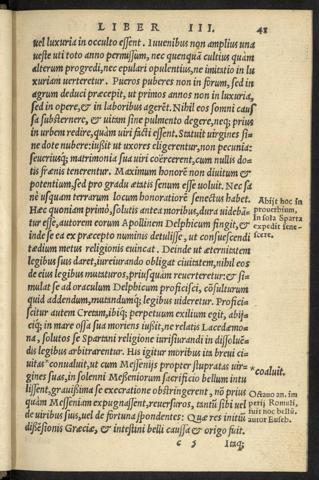 LIBER III. 41
uel luxuria in occulto essent. Iuuenibus non amplius una
ueste uti toto anno permissum, nec quenquã cultius quàm
alterum progredi, nec epulari opulentius, ne imitatio in lu
xuriam uerteretur. Pueros puberes non in forum, sed in
agrum deduci præcepit, ut primos annos non in luxuria,
sed in opere, & in laboribus agerẽt. Nihil eos somni caus
sa substernere, & uitam sine pulmento degere, neq; prius
in urbem redire, quàm uiri facti essent. Statuit uirgines si-
ne dote nubere: iussit ut uxores eligerentur, non pecunia:
seueriusq; matrimonia sua uiri coërcerent, cum nullis do-
tis frænis tenerentur. Maximum honorẽ non diuitum &
potentium, sed pro gradu ætatis senum esse uoluit. Nec sa
nè usquam terrarum locum honoratiorẽ senectus habet.
Abijt hoc in
prouerbium,
In sola Sparta
expedit sene-
scere.
Hæc quoniam primò, solutis antea moribus, dura uidebã-
tur esse, autorem eorum Apollinem Delphicum fingit, &
inde se ea ex præcepto numinis detulisse, ut consuescendi
tædium metus religionis euincat. Deinde ut æternitatem
legibus suis daret, iureiurando obligat ciuitatem, nihil eos
de eius legibus mutaturos, priusquàm reuerteretur: & si-
mulat se ad oraculum Delphicum proficisci, cõsulturum
quid addendum, mutandumq; legibus uideretur. Profici-
scitur autem Cretam, ibiq; perpetuum exilium egit, abij-
ciq; in mare ossa sua moriens iussit, ne relatis Lacedæmo-
na, solutos se Spartani religione iurisiurandi in dissoluẽ-
dis legibus arbitrarentur. His igitur moribus ita breui ci-
uitas *conualuit, ut cum Messenijs propter stupratas uir-
*coaluit.
gines suas, in solenni Messeniorum sacrificio bellum intu
lissent, grauißima se execratione obstringerent, nõ prius
quàm Messeniam expugnassent, reuersuros, tantũ sibi uel
Octauo an. im
perij Romuli,
fuit hoc bellũ.
autor Euseb.
de uiribus suis, uel de fortuna spondentes: Quæ res initiũ
dißẽsionis Græciæ, & intestini belli caussa & origo fuit.
c 5 Itaq;